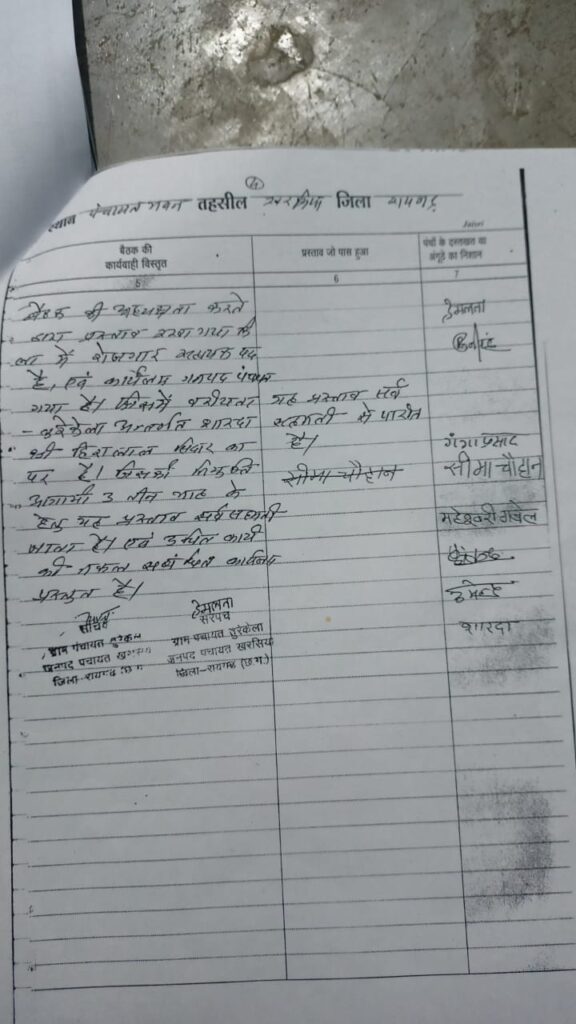 (4)
स्थान पंचायत भवन तहसील खरसिया जिला रायगढ़
बैठक की
कार्यवाही विस्तृत
प्रस्ताव जो पास हुआ
पंचों के दस्तखत या
अंगूठे का निशान
5
6
7
बैठक की अध्यक्षता करते
प्रस्ताव रखा गया कि
में रोजगार सहायक पद
है, एवं कार्यालय जनपद पंचायत
गया है। जिसमें वरीयता
अन्तर्गत शारदा
श्री हिरालाल का
पर है। जिसकी नियुक्ति
आगामी 3 तीन माह के
हेतु यह प्रस्ताव सर्व सहमती
जाता है। एवं उचित कार्य
की नकल संबंधित कार्यालय
प्रस्तुत है।
यह प्रस्ताव सर्व
सहमती से पारीत
है।
सीमा चौहान
हेमलता
गंगा प्रसाद
सीमा चौहान
महेश्वरी गबेल
शारदा
सचिव
ग्राम पंचायत तुरेकेला
जनपद पंचायत खरसिया
जिला-रायगढ़ (छ.ग.)
हेमलता
सरपंच
ग्राम पंचायत तुरेकेला
जनपद पंचायत खरसिया
जिला-रायगढ़ (छ.ग.)